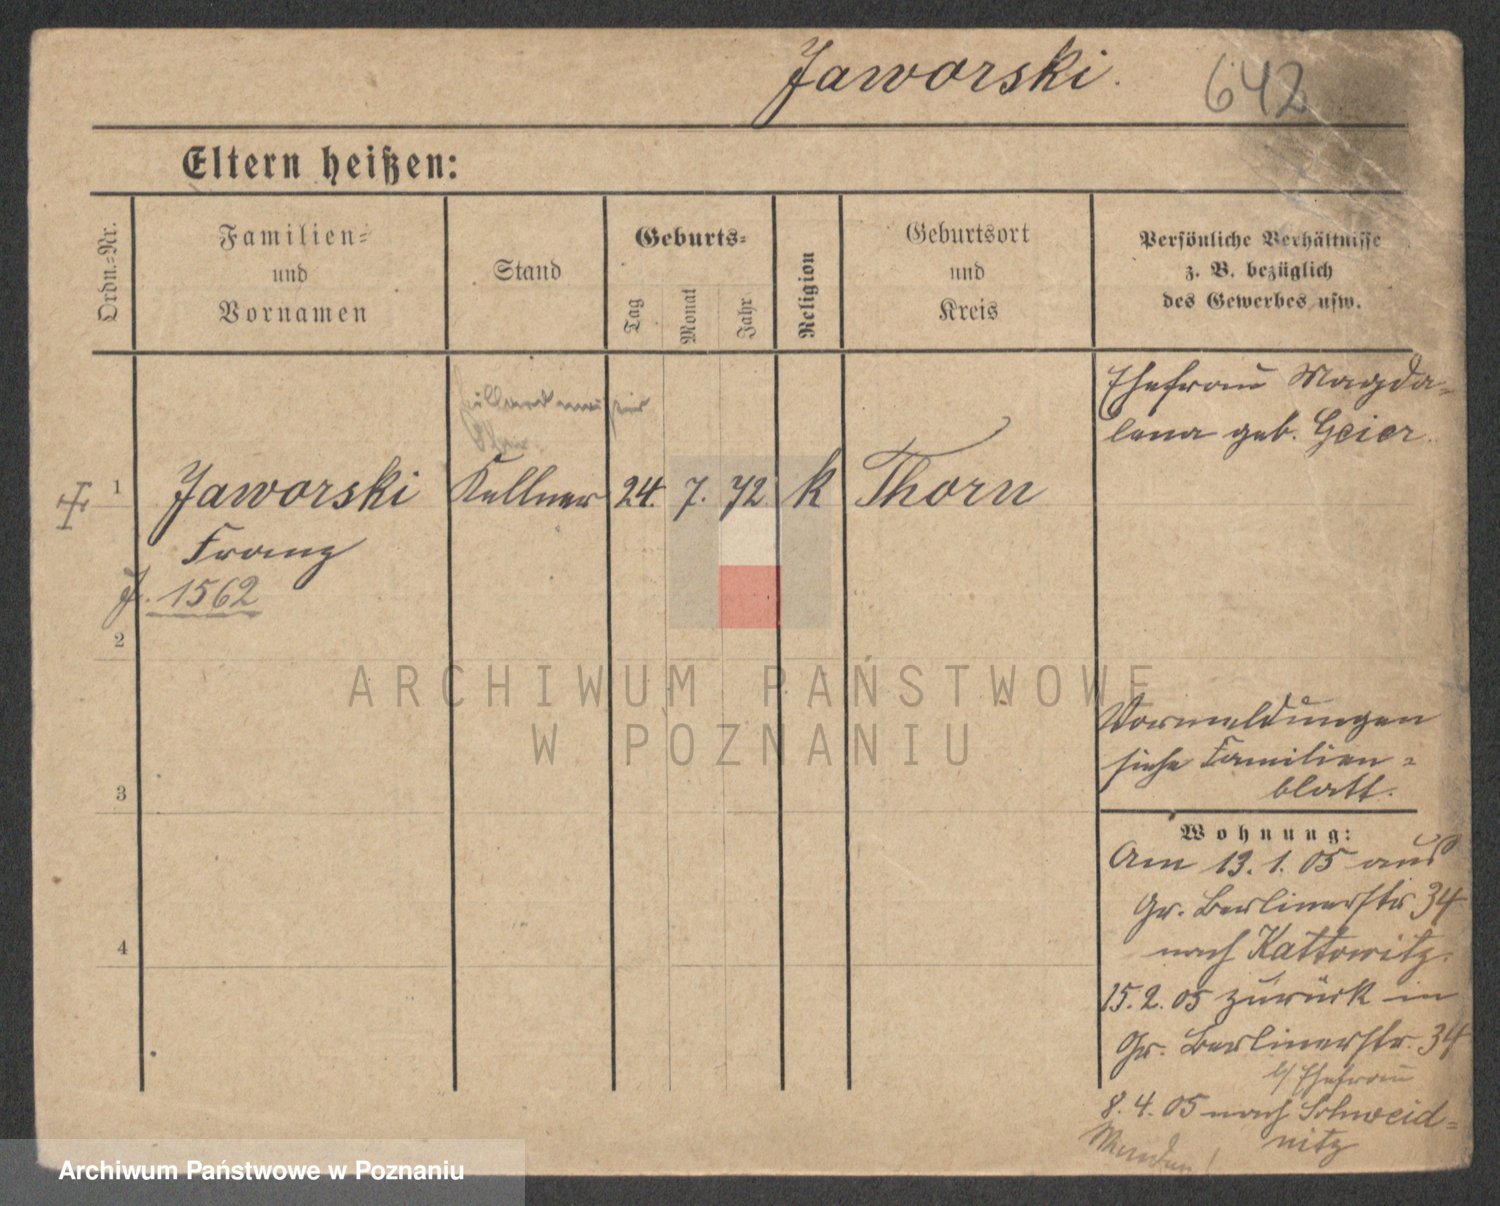 Jaworski.
642
Eltern heißen:
Ordn.-Nr.
Familien-
und
Vornamen
Stand
Geburts-
Tag
Monat
Jahr
Religion
Geburtsort
und
Kreis
Persönliche Verhältnisse
z. B. bezüglich
des Gewerbes usw.
Ehefrau Magda-
lena geb. Geier.
1
Jaworski
Kellner
24.
7.
72
k
Thorn
Franz
J. 1562
2
Vormeldungen
siehe Familien-
blatt.
3
Wohnung:
Am 13.1.05 aus
Gr. Berlinerstr 34
nach Kattowitz.
4
15.2.05 zurück in
Gr. Berlinerstr. 34
b/ Ehefrau
8.4.05 nach Schweid-
nitz
ARCHIWUM PAŃSTWOWE
W POZNANIU
Archiwum Państwowe w Poznaniu